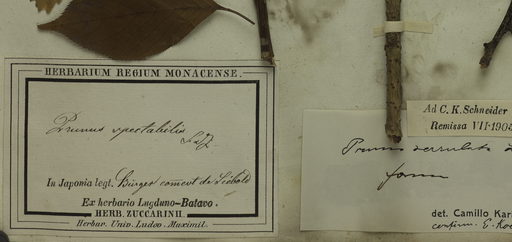 HERBARIUM REGIUM MONACENSE.
Prunus spectabilis
In Japonia legt. Bürger comevt de Siebold
Ex herbario Lugduno-Batavo.
HERB. ZUCCARINII.
Herbar. Univ. Ludov. Maximil.
Ad C. K. Schneider
Remissa VII-1905
Prunus serrulata
forma
det. Camillo Kar
confirm. E. Koe